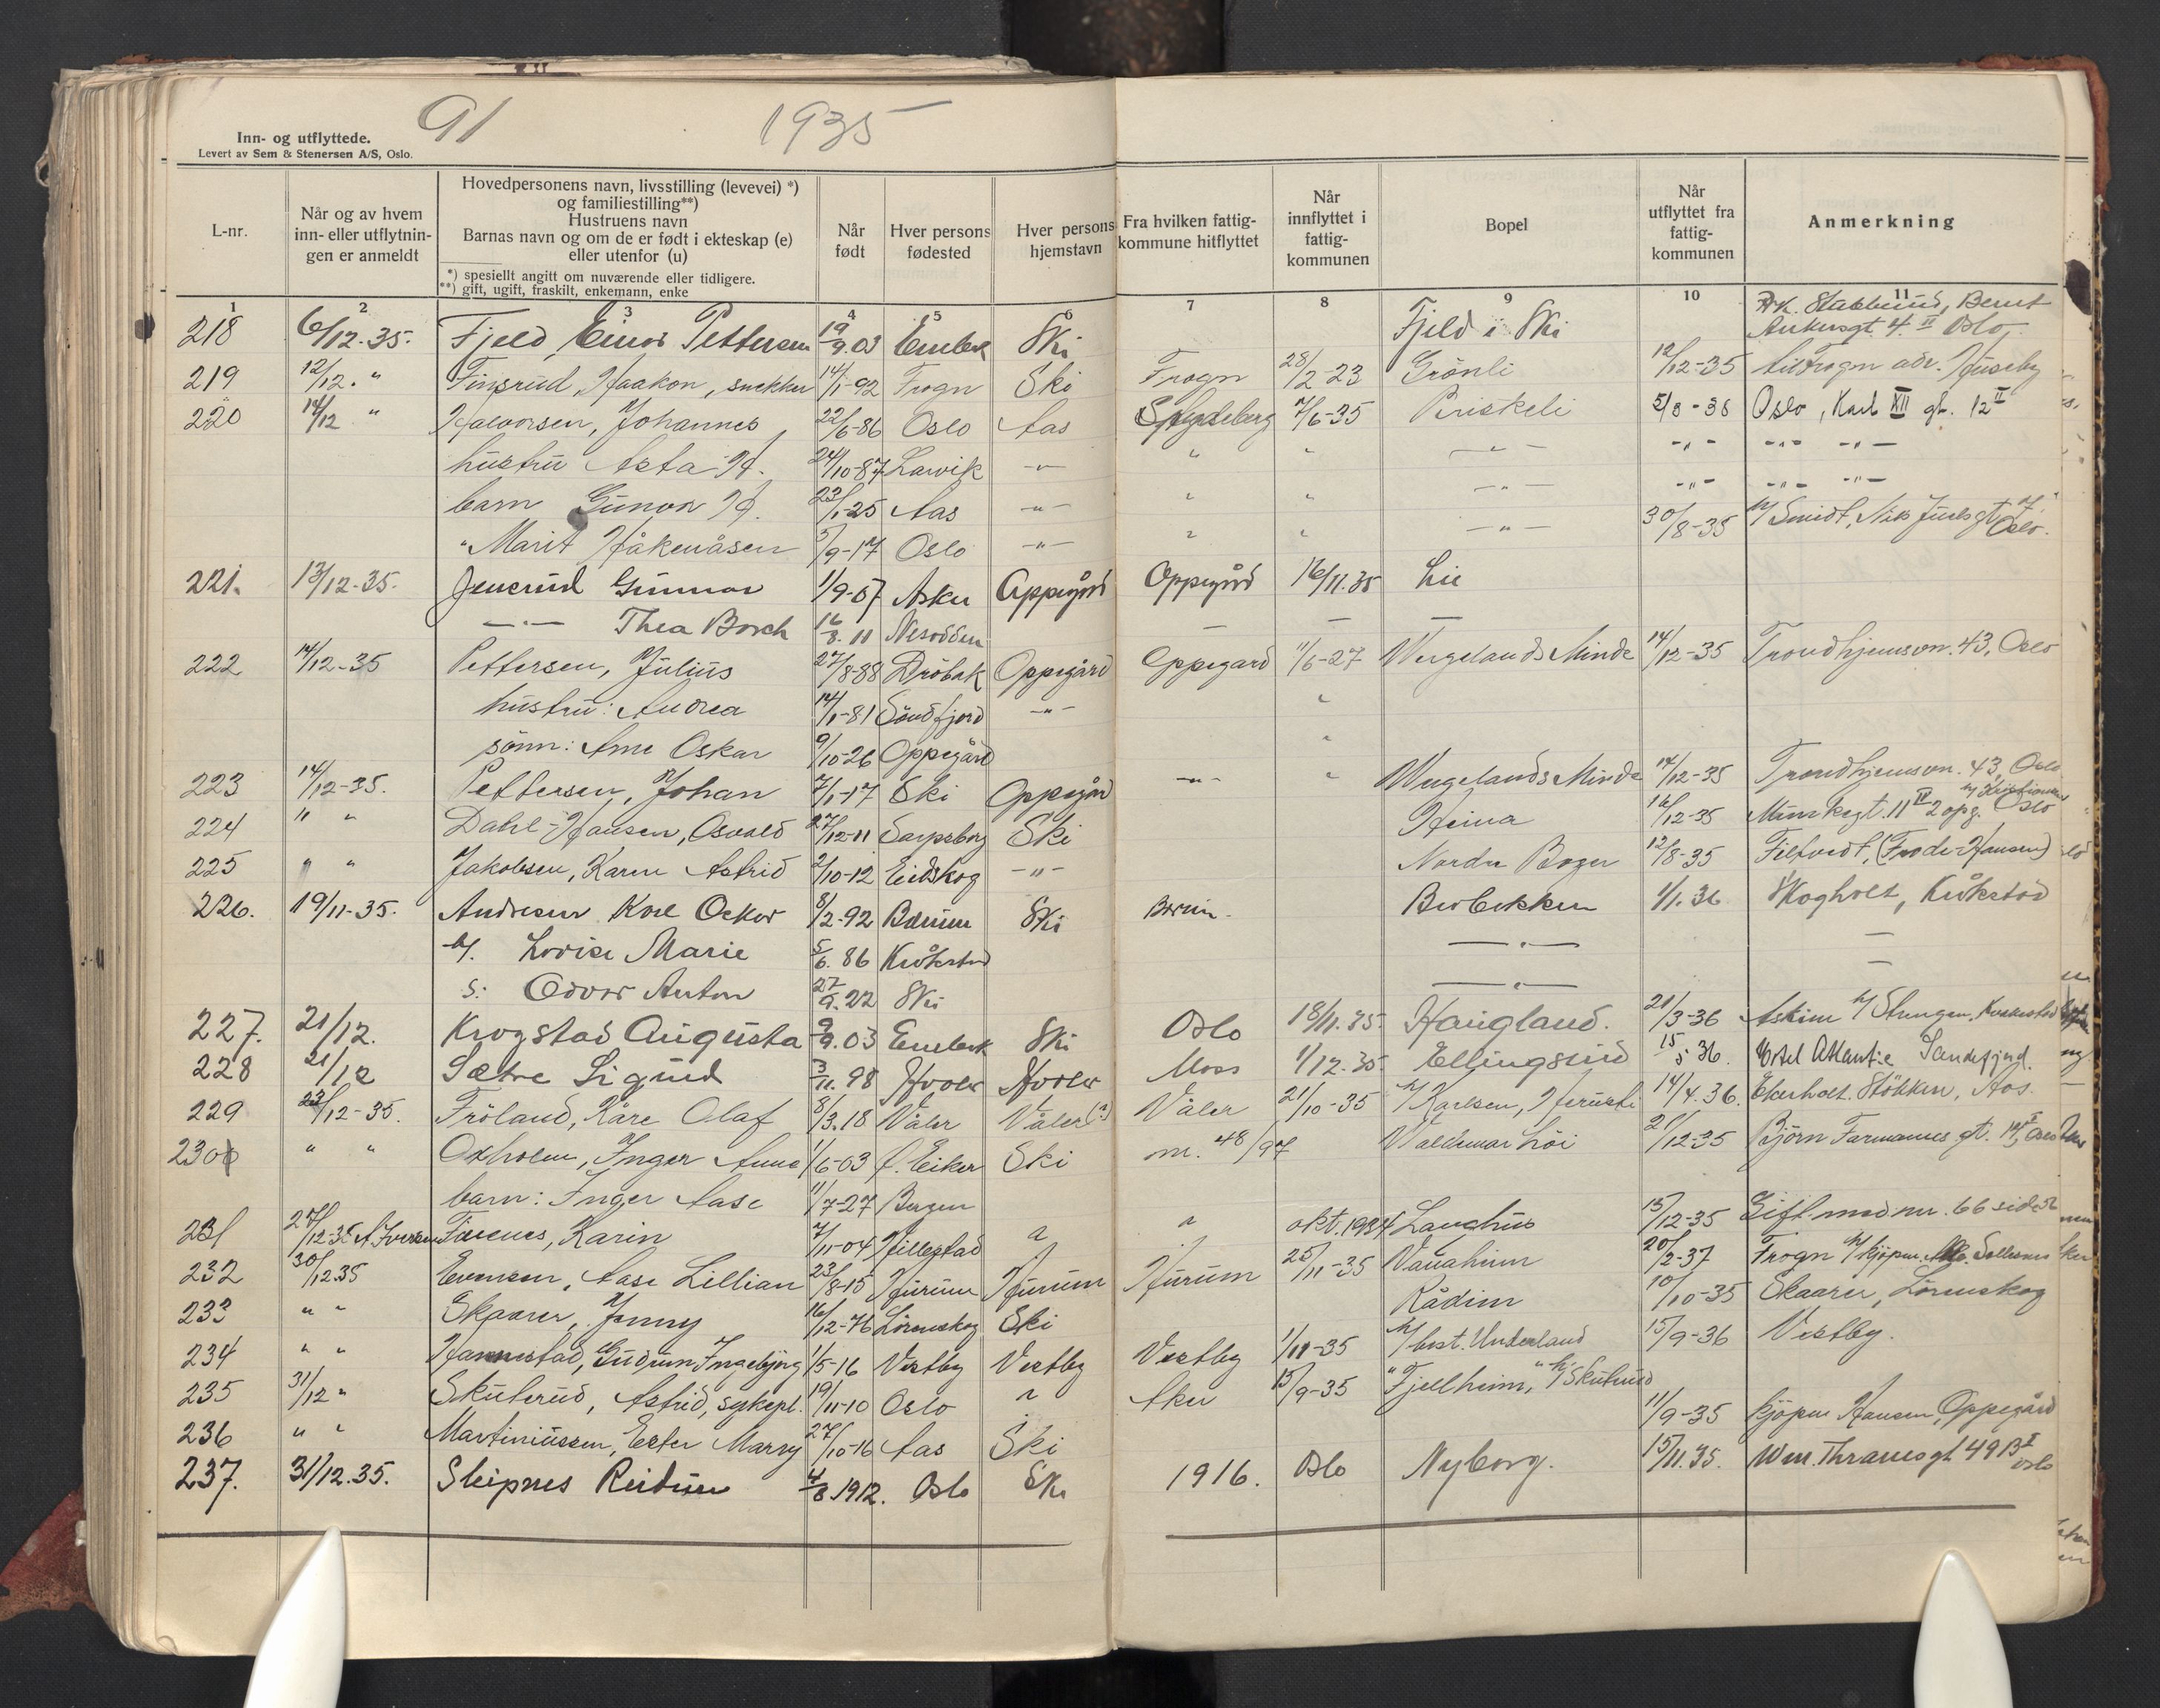 91 1935
Inn- og utflyttede.
Levert av Sem & Stenersen A/S, Oslo.
L-nr.
Når og av hvem
inn- eller utflytnin-
gen er anmeldt
Hovedpersonens navn, livsstilling (levevei) *)
og familiestilling**)
Hustruens navn
Barnas navn og om de er født i ekteskap (e)
eller utenfor (u)
*) spesiellt angitt om nuværende eller tidligere.
**) gift, ugift, fraskilt, enkemann, enke
Når
født
Hver persons
fødested
Hver persons
hjemstavn
Fra hvilken fattig-
kommune hitflyttet
Når
innflyttet i
fattig-
kommunen
Bopel
Når
utflyttet fra
fattig-
kommunen
Anmerkning
1 2 3 4 5 6 7 8 9 10 11
218 6/12-35. Fjeld Einar Pettersen 19/9.03 Enebak Ski Fjeld i Ski Bernt Ankersgt. 4. II Oslo
219 12/12. " Finsrud, Haakon, snekker 14/1-92 Frogn Ski Frogn 28/2-23 Grönli 12/12-35 til Frogn adr. Huseby
220 14/12 " Halvorsen, Johannes, 22/6-86 Oslo Aas Spydeberg 7/6-35 Briskeli 5/8-35 Oslo, Karl XII gt. 12 II
hustru Asta H. 24/10-87 Larvik -"- " " -"- -"- -"- -"-
barn Gunvor H. 23/1-25 Aas -"- " " -"- -"- -"- -"-
" Marit Håkenåsen 5/9-17 Oslo -"- " " -"- 30/8-35 h/ Smidt, Nils Juelsgt. 7, Oslo.
221. 13/12-35. Jenerud Gunnar 1/9-07 Asker Oppegård Oppegård 16/11.35 Lie
-"- Thea Borch 16/8.11 Nesodden — —
222 14/12-35 Pettersen, Julius 27/8-88 Dröbak Oppegård Oppegard 1/6-27 Wergelands Minde 14/12-35 Trondhjemsvn. 43, Oslo
hustru: Andrea 14/1-81 Söndfjord -"- "
sönn: Arne Oskar 9/10-26 Oppegård "
223 14/12-35. Pettersen, Johan 7/1-17 Ski Oppegård -"- " Wergelands Minde 14/12-35 Trondhjemsvn. 43, Oslo
224 " " Dahl-Hansen, Osvald 27/12-11 Sarpsborg Ski Heima 16/12-35 Munkegt. 11 IV 2 opg. Oslo
225 " " Jakobsen, Karen Astrid 2/10-12 Eidskog -"- Nordre Boger 12/8-35 Filtvedt, (Frode-Hansen)
226. 19/11-35. Andresen Karl Oskar 8/2-92 Bærum Ski Bærum. Berbekken 1/1.36 Skogholt, Kråkstad
h/. Lovise Marie 5/6.86 Kråkstad -"- —
s: Odvar Anton 27/9.22 Ski -"- —
227. 21/12. Krogstad Augusta 9/9.03 Enebak Ski Oslo 18/11.35. Haugland. 21/3-36 Askim
228 21/12 Sætre Sigurd 3/11.98 Hvaler Hvaler Moss 1/12.35. Ellingsrud 15/5 36. Hotel Atlantic Sandefjord.
229 23/12-35. Fröland, Kåre Olaf 8/3.18 Våler Våler (?) Våler 21/10-35 h/ Karlsen, 14/4.36. Ekerholt. Stökken, Aas.
230 " " Oxholm, Inger Anna 1/6-03 Ö. Eiker Ski nr. 48/97 Waldemarhöi 21/12-35 Björn Farmanns gt.
barn: Inger Aase 11/7-27 Bergen
231 27/12-35 A. Iversen Karin 7/11-04 " " okt. 1934 Langhus 15/12-35 Gift med nr. 66 side
232 30/12.35 Evensen, Aase Lillian 23/8-15 Hurum Hurum Hurum 25/11-35 Vanaheim 20/2-37 Frogn
233 " " Skaarer, Jenny 16/12-76 Lörenskog Ski Rådim 10/10-35 Skaarer, Lörenskog
234 " " Hannestad, Gudrun Ingebjörg 1/5-16 Vestby Vestby Vestby 1/11-35 h/ best. Underland 15/9-36 Vestby.
235 31/12 " Skuterud, Astrid, sykepl. 19/11-10 Oslo " Aker 15/9-35 "Fjellheim," h/ Skuterud
236 " " Martiniussen, Ester Marry 27/10-16 Aas Ski 11/9-35 kjöpm Hansen, Oppegård
237. 31/12.35. Sleipnes Reidun 4/8.1912. Oslo Ski 1916. Oslo Nyborg. 15/11.35. Wm. Thranesgt 49 B I Oslo